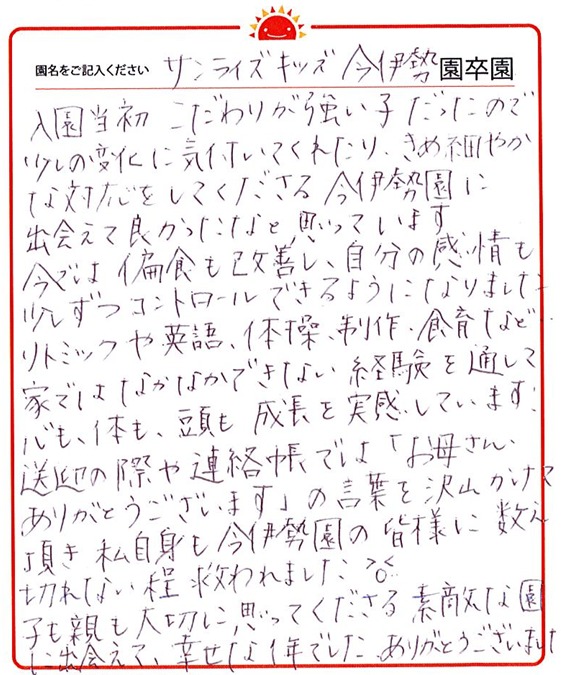 園名をご記入ください サンライズキッズ 今伊勢 園卒園
入園当初 こだわりが強い子だったので
少しの変化に気付いてくれたり、きめ細やか
な対応をしてくださる今伊勢園に
出会えて良かったなと思っています
今では偏食も改善し、自分の感情も
少しずつコントロールできるようになりました
リトミックや英語、体操、制作、食育など…
家ではなかなかできない経験を通して
心も、体も、頭も 成長を実感しています!
送迎の際や連絡帳では「お母さん、
ありがとうございます」の言葉を沢山かけて
頂き 私自身も今伊勢園の皆様に数え
切れない程 救われました
子も親も大切に思ってくださる 素敵な園
に出会えて、幸せな1年でした ありがとうございました